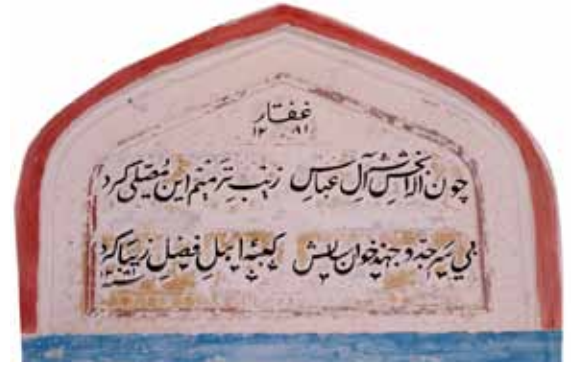 غفار
۱۲۸۱
چون الابخش آل عباس زیب ترمیم این مصلی کرد
بی سر جد و جهد خون سالش کعبۂ اہل فضل زیبا کرد
۱۲۸۱